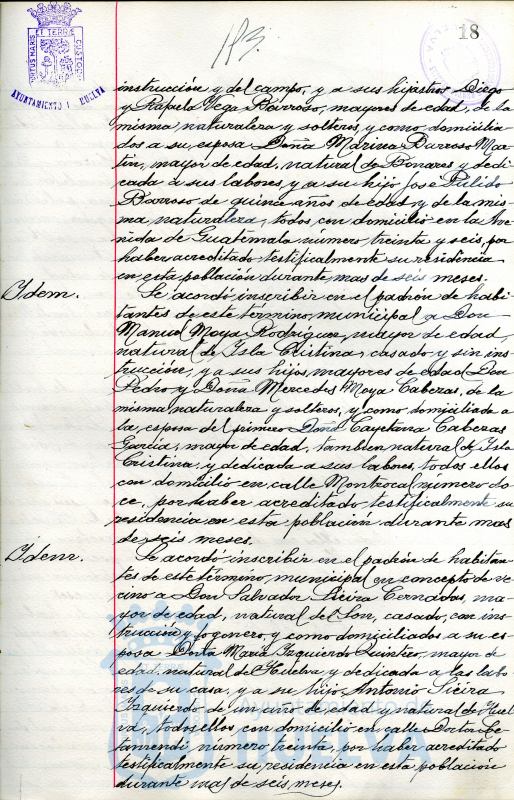 18
113.
PORTUS MARIS ET TERRÆ CUSTODIA
AYUNTAMIENTO HUELVA
instrucción y del campo, y a sus hijastros Diego
y Rafaela Vega Barroso, mayores de edad, de la
misma naturaleza y solteros, y como domicilia-
dos a su esposa Doña Marina Barroso Mar-
tin, mayor de edad, natural de Bonares y dedi-
cada a sus labores, y a su hijo José Pulido
Barroso de quince años de edad y de la mis-
ma naturaleza, todos con domicilio en la Ave-
nida de Guatemala número treinta y seis, por
haber acreditado testificalmente su residencia
en esta población durante mas de seis meses.
Ydem.
Se acordó inscribir en el padrón de habi-
tantes de este término municipal a Don
Manuel Moya Rodriguez, mayor de edad,
natural de Isla Cristina, casado y sin ins-
trucción, y a sus hijos, mayores de edad Don
Pedro y Doña Mercedes Moya Cabezas, de la
misma naturaleza y solteros, y como domiciliada a
la esposa del primero Doña Cayetana Cabezas
Garcia, mayor de edad, tambien natural de Isla
Cristina y dedicada a sus labores, todos ellos
con domicilio en calle Montrocal número do-
ce, por haber acreditado testificalmente su
residencia en esta población durante mas
de seis meses.
Ydem.
Se acordó inscribir en el padrón de habitan-
tes de este término municipal en concepto de ve-
cino a Don Salvador Sieira Cernadas, ma-
yor de edad, natural del Son, casado, con ins-
trucción y fogonero, y como domiciliados a su es-
posa Doña Maria Izquierdo Quintero, mayor de
edad, natural de Huelva y dedicada a las labo-
res de su casa, y a su hijo Antonio Sieira
Izquierdo de un año de edad y natural de Huel-
va, todos ellos con domicilio en calle Doctor Le-
tamendi número treinta, por haber acreditado
testificalmente su residencia en esta población
durante mas de seis meses.